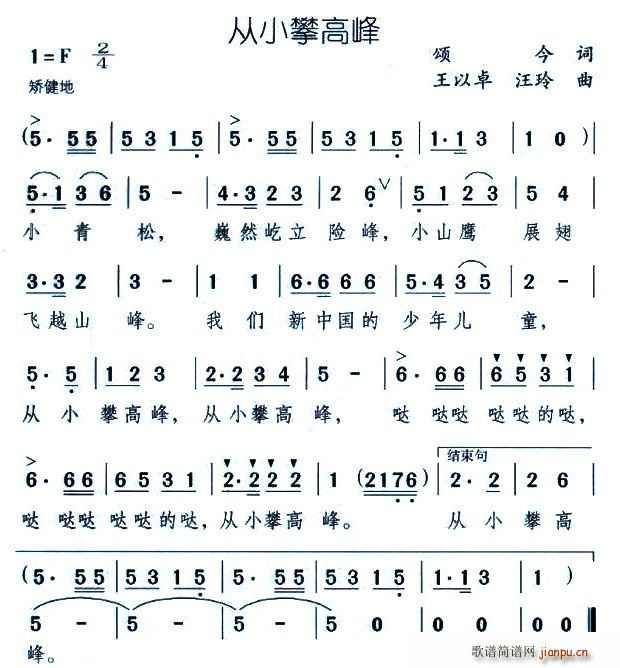 从小攀高峰
1=F 2/4
颂 今 词
矫健地
王以卓 汪玲 曲
(5· 55 | 5315 | 5· 55 | 5315 | 1·13 | 1 0 )
5·1 36 | 5 - | 4·3 23 | 2 6 ∨ | 51 23 | 5 4
小 青 松, 巍然屹立 险峰, 小山鹰 展翅
3·3 2 | 3 - | 1 1 | 6·6 66 | 5·4 35 | 2 -
飞越山 峰。 我 们 新中国的 少年儿 童,
5· 5 | 12 3 | 2·2 34 | 5 - | 6· 66 | 6531
从 小 攀高峰, 从小攀高 峰, 哒 哒哒 哒哒的哒,
结束句
6· 66 | 6531 | 2·2 22 | 1 (2176) | 2· 2 | 2 6
哒 哒哒 哒哒的哒, 从小攀高 峰。 从 小 攀高
(5· 55 | 5315 | 5· 55 | 5315 | 1·13 | 1 )
5 - | 5 - | 5 - | 5 0 | 0 0 | 0 ‖
峰。
歌谱简谱网
jianpu.cn